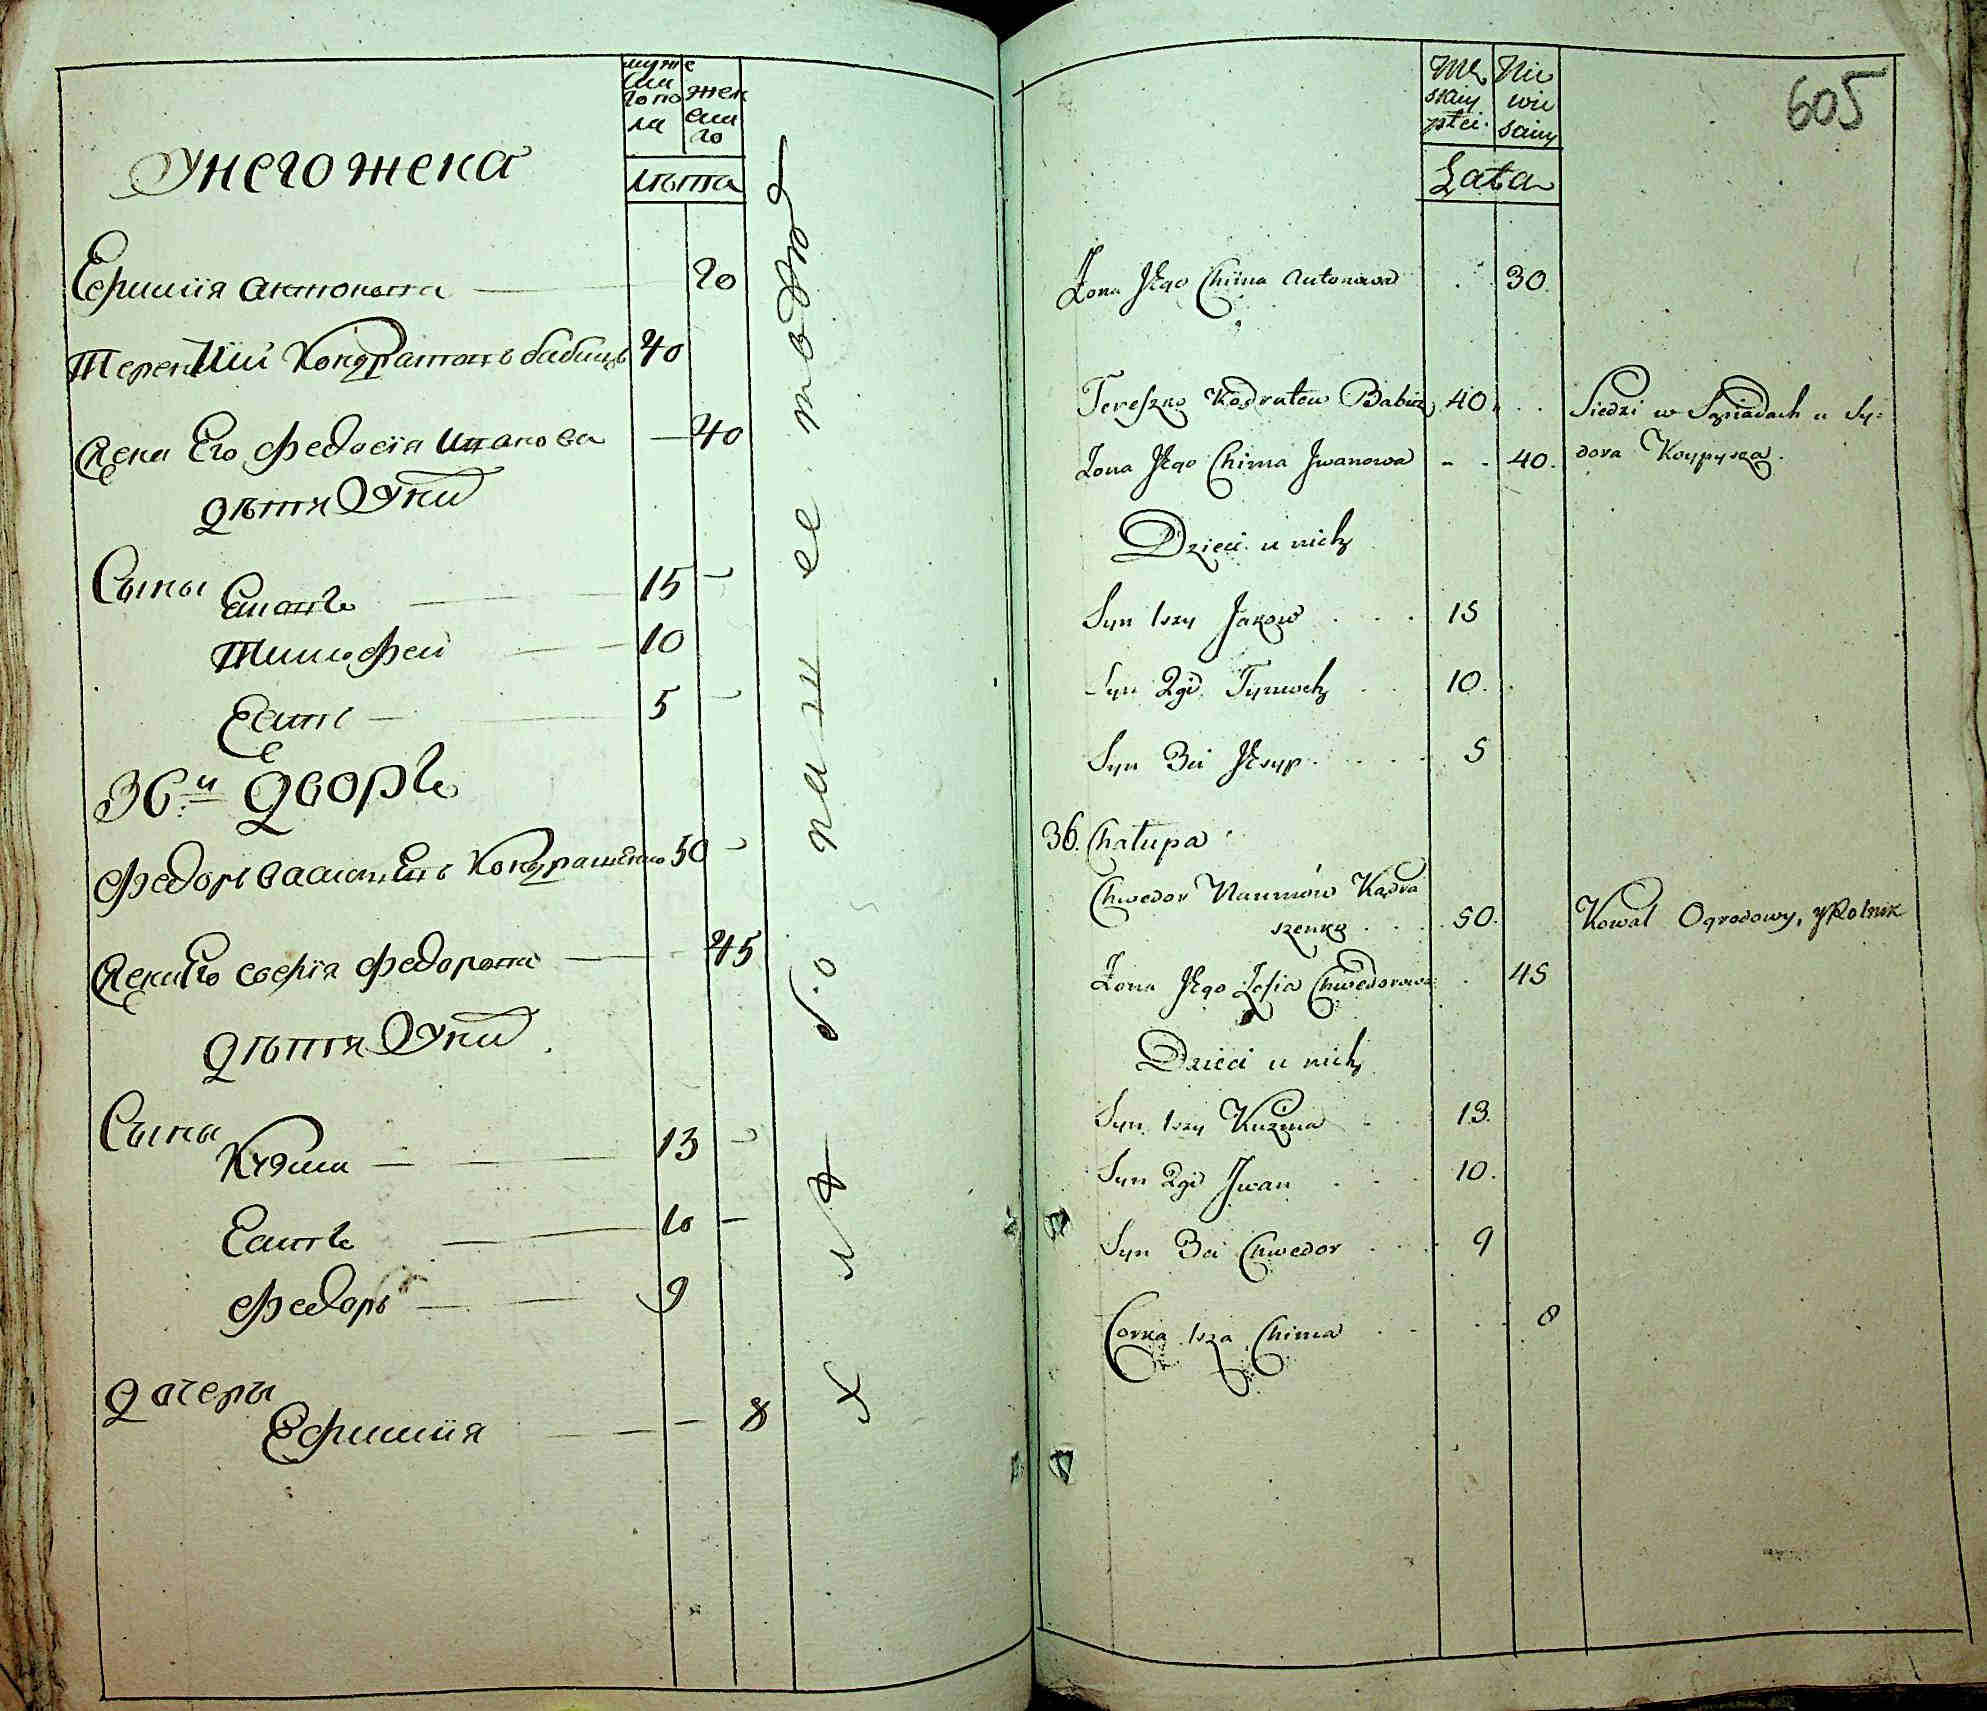 муже
ска
го по
ла
жен
ска
го
лѣта
У него жена
Ефимия антонова 20
Терентий Кондратовъ бабичъ 40
жена Его федосия Иванова 40
дѣти У ни
Сыны
10
Тимофей
Есипъ 5
36й дворъ
федоръ 50
жена Его софия федорова 45
дѣти У ни
Сыны
Кузма 13
10
федоръ 9
дочеры
Ефимия 8
605
Mę
skiey
płci
Nie
wie
sciey
Lata
Żona Jego Chima Antonowa 30.
Tereszko Kodratow Babicz 40. Siedzi w Sąsiadach u Sy=
Żona Jego Chima Jwanowa 40. dora
Dzieci u nich
Syn 1szy Jakow 15
Syn 2gi Tymoch 10.
Syn 3ci Jesyp 5
36. Chałupa
Chwedor Naumow Kądra
szenko 50. Kowal Ogrodowy, y Rolnik
Żona Jego Zosia Chwedorowa 45
Dzieci u nich
Syn 1szy Kuzma 13.
Syn 2gi Jwan 10.
Syn 3ci Chwedor 9
Corka 1sza Chima 8